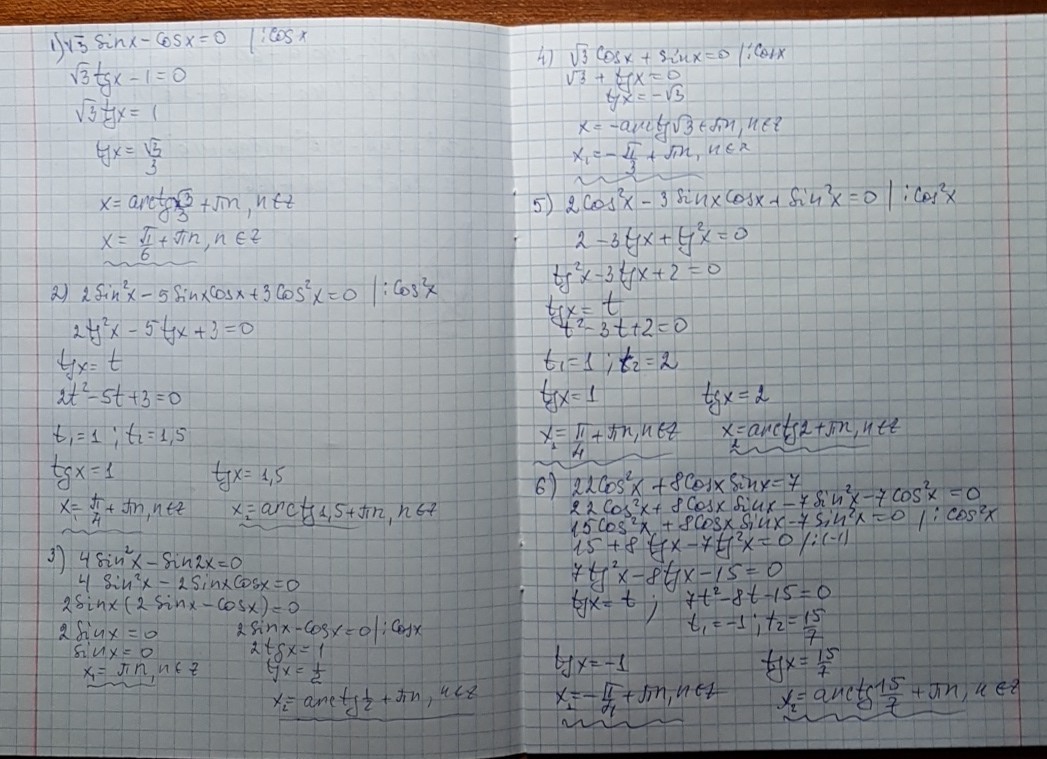 1) √3 sinx - cosx = 0 | : cosx
√3 tgx - 1 = 0
√3 tgx = 1
tgx = √3/3
x = arctg √3/3 + πn, n∈z
x = π/6 + πn, n∈z
2) 2sin²x - 5sinxcosx + 3cos²x = 0 | : cos²x
2tg²x - 5tgx + 3 = 0
tgx = t
2t² - 5t + 3 = 0
t₁ = 1 ; t₂ = 1,5
tgx = 1 tgx = 1,5
x₁ = π/4 + πn, n∈z x₂ = arctg1,5 + πn, n∈z
3) 4sin²x - sin2x = 0
4 sin²x - 2sinxcosx = 0
2sinx(2sinx - cosx) = 0
2sinx = 0 2sinx - cosx = 0 | : cosx
sinx = 0 2tgx = 1
x₁ = πn, n∈z tgx = 1/2
x₂ = arctg 1/2 + πn, n∈z
4) √3 cosx + sinx = 0 | : cosx
√3 + tgx = 0
tgx = -√3
x = -arctg√3 + πn, n∈z
x₁ = -π/3 + πn, n∈z
5) 2cos²x - 3sinxcosx + sin²x = 0 | : cos²x
2 - 3tgx + tg²x = 0
tg²x - 3tgx + 2 = 0
tgx = t
t² - 3t + 2 = 0
t₁ = 1 ; t₂ = 2
tgx = 1 tgx = 2
x₁ = π/4 + πn, n∈z x₂ = arctg2 + πn, n∈z
6) 22cos²x + 8cosxsinx = 7
22cos²x + 8cosxsinx - 7sin²x - 7cos²x = 0
15cos²x + 8cosxsinx - 7sin²x = 0 | : cos²x
15 + 8tgx - 7tg²x = 0 | : (-1)
7tg²x - 8tgx - 15 = 0
tgx = t ; 7t² - 8t - 15 = 0
t₁ = -1 ; t₂ = 15/7
tgx = -1 tgx = 15/7
x₁ = -π/4 + πn, n∈z x₂ = arctg 15/7 + πn, n∈z